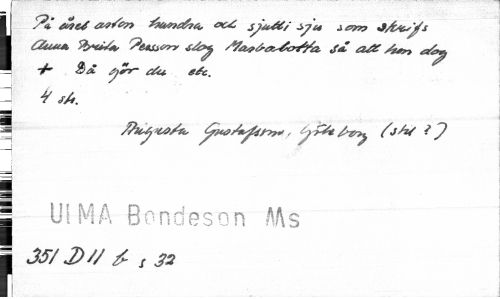 På året arton hundra och sjutti sju som skrifs
Anna Brita Persson slog Masbobotta så att hon dog
+ Då gör du etc.
4 str.
Augusta Gustafsson, Göteborg (std ?)
ULMA Bondeson Ms
351 D 11 b s 32